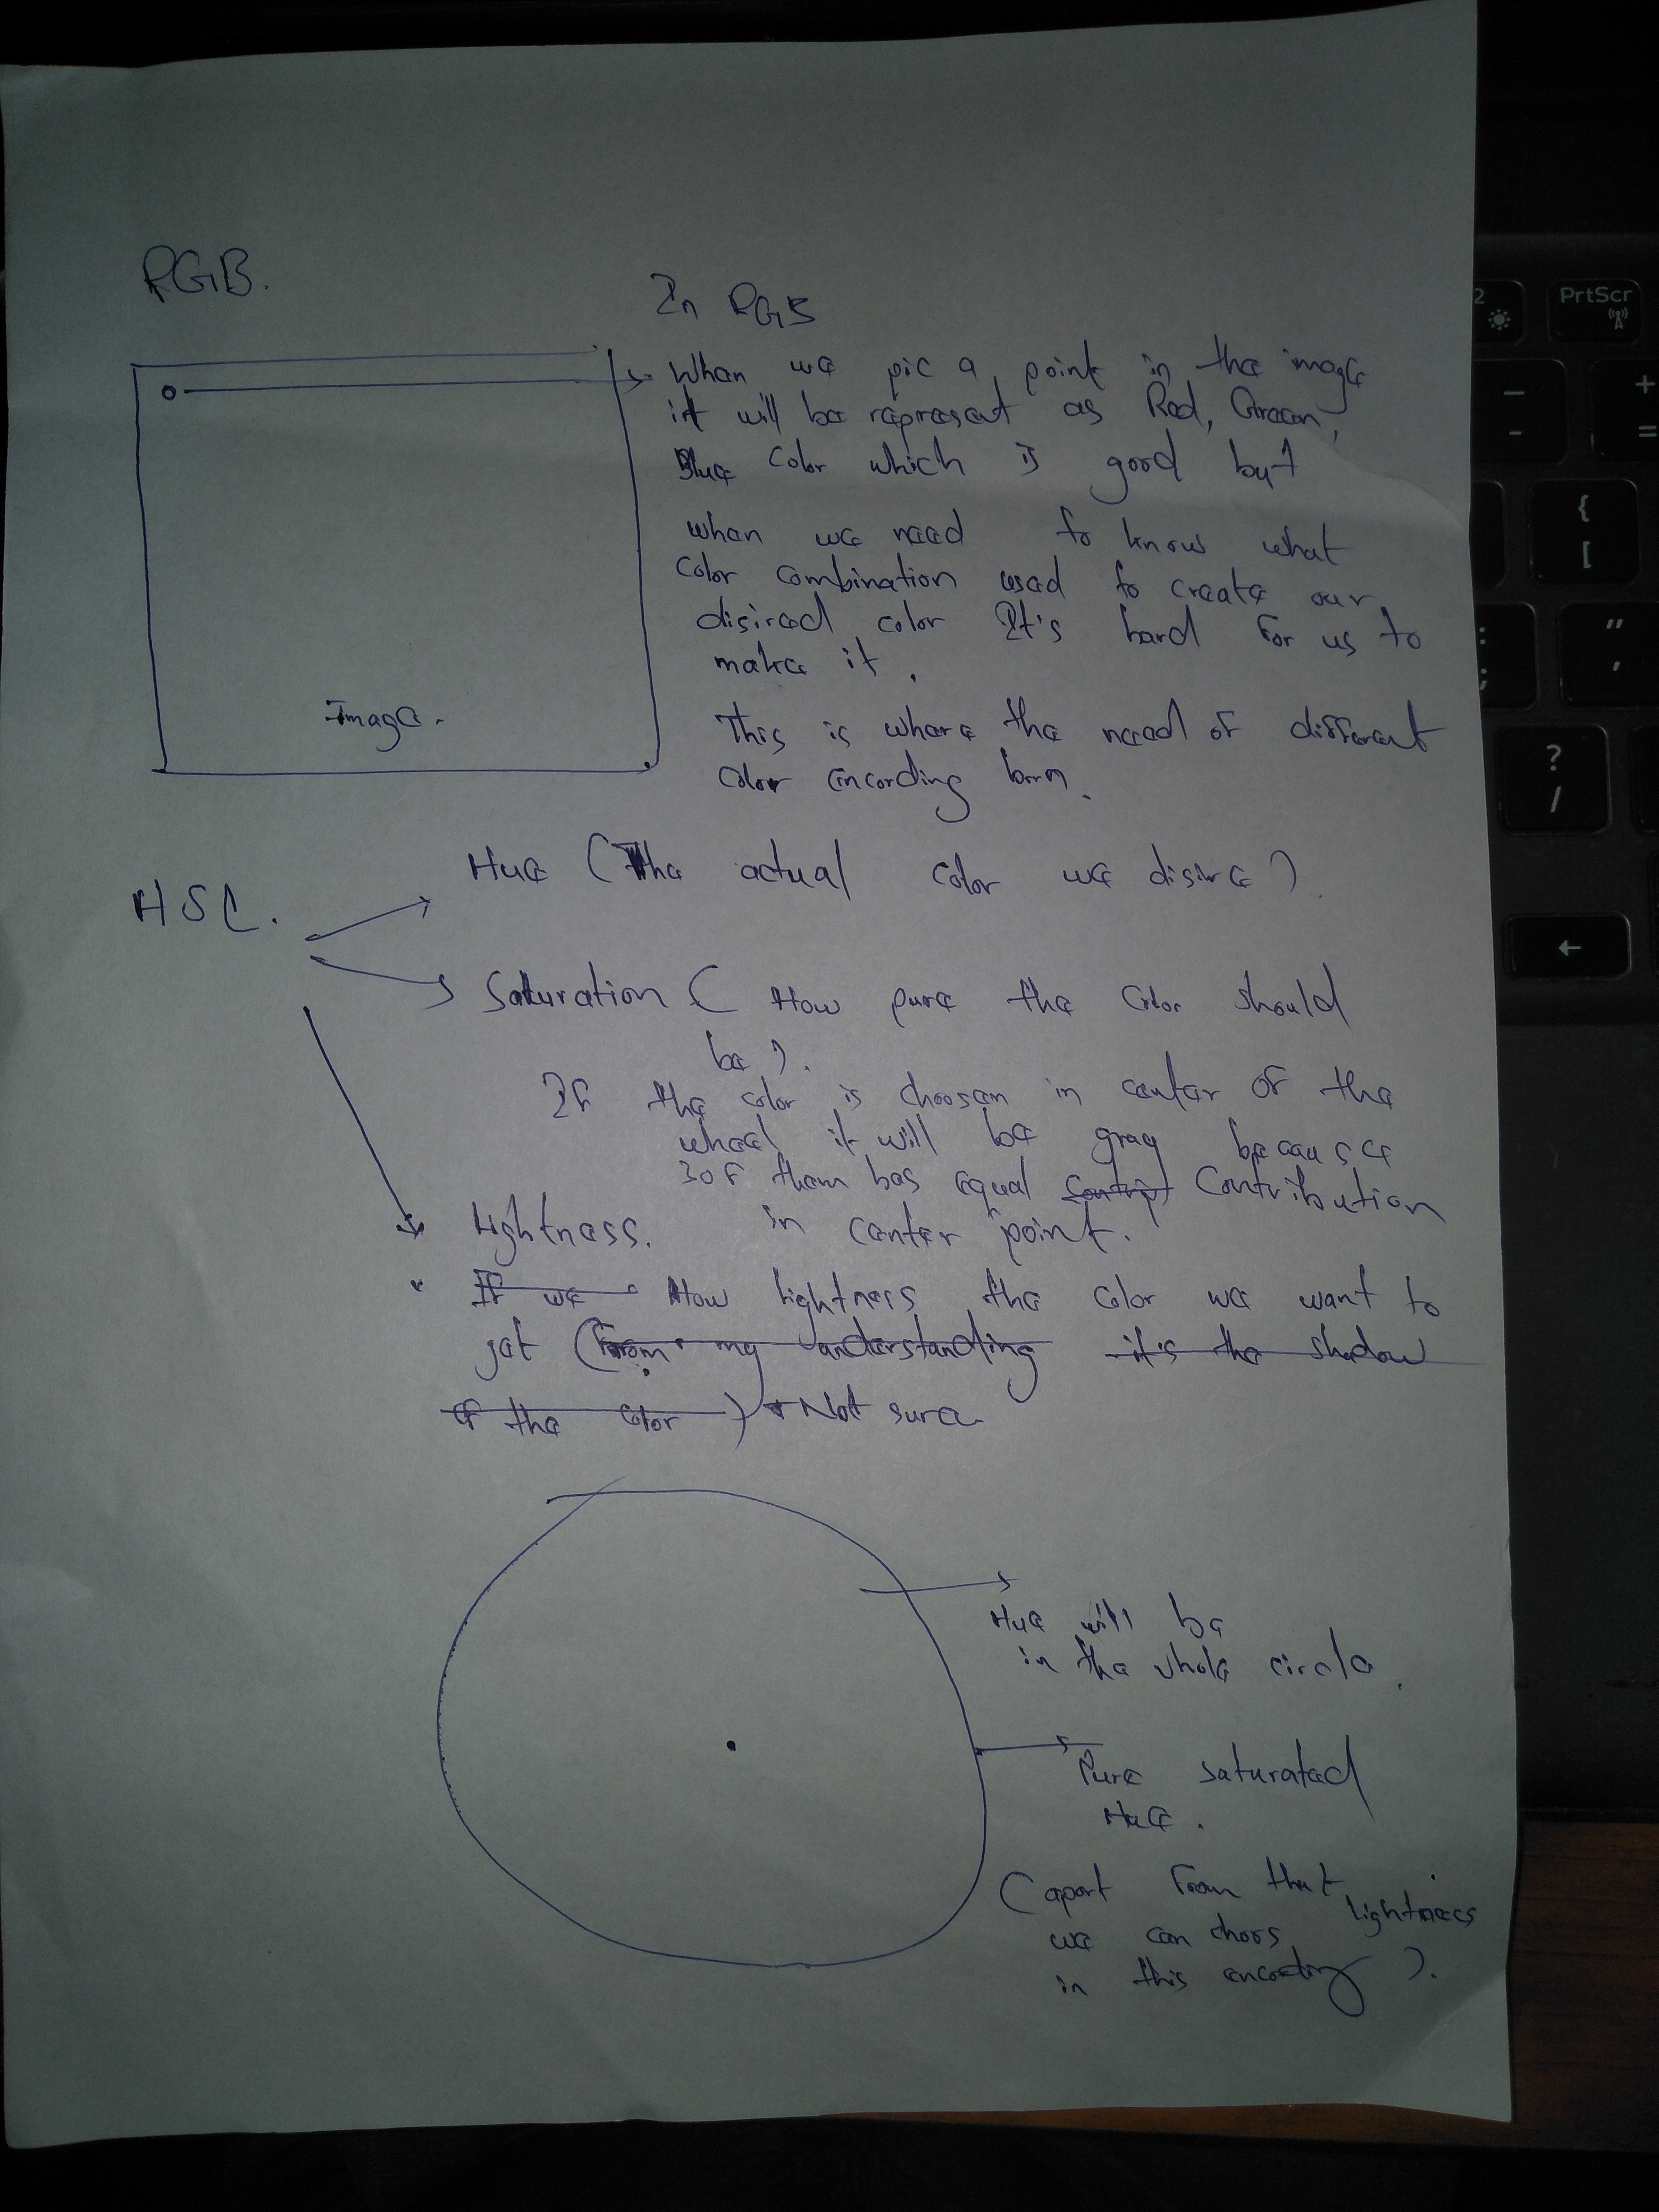 RGB.
In RGB
When we pic a point in the image
it will be represent as Red, Green,
Blue color which is good but
when we need to know what
color combination used to create our
disired color It's hard for us to
make it.
Image.
This is where the need of different
color encording born.
HSL.
Hue (The actual color we disire)
Saturation ( How pure the color should
be ).
If the color is choosen in center of the
wheel it will be gray because
3 of them has equal Contribution
in center point.
Lightness.
If we How lightness the color we want to
get (From my understanding it's the shadow
of the color) Not sure
Hue will be
in the whole circle.
Pure saturated
Hue.
(apart from that lightness
we can choos
in this encoding ).
PrtScr